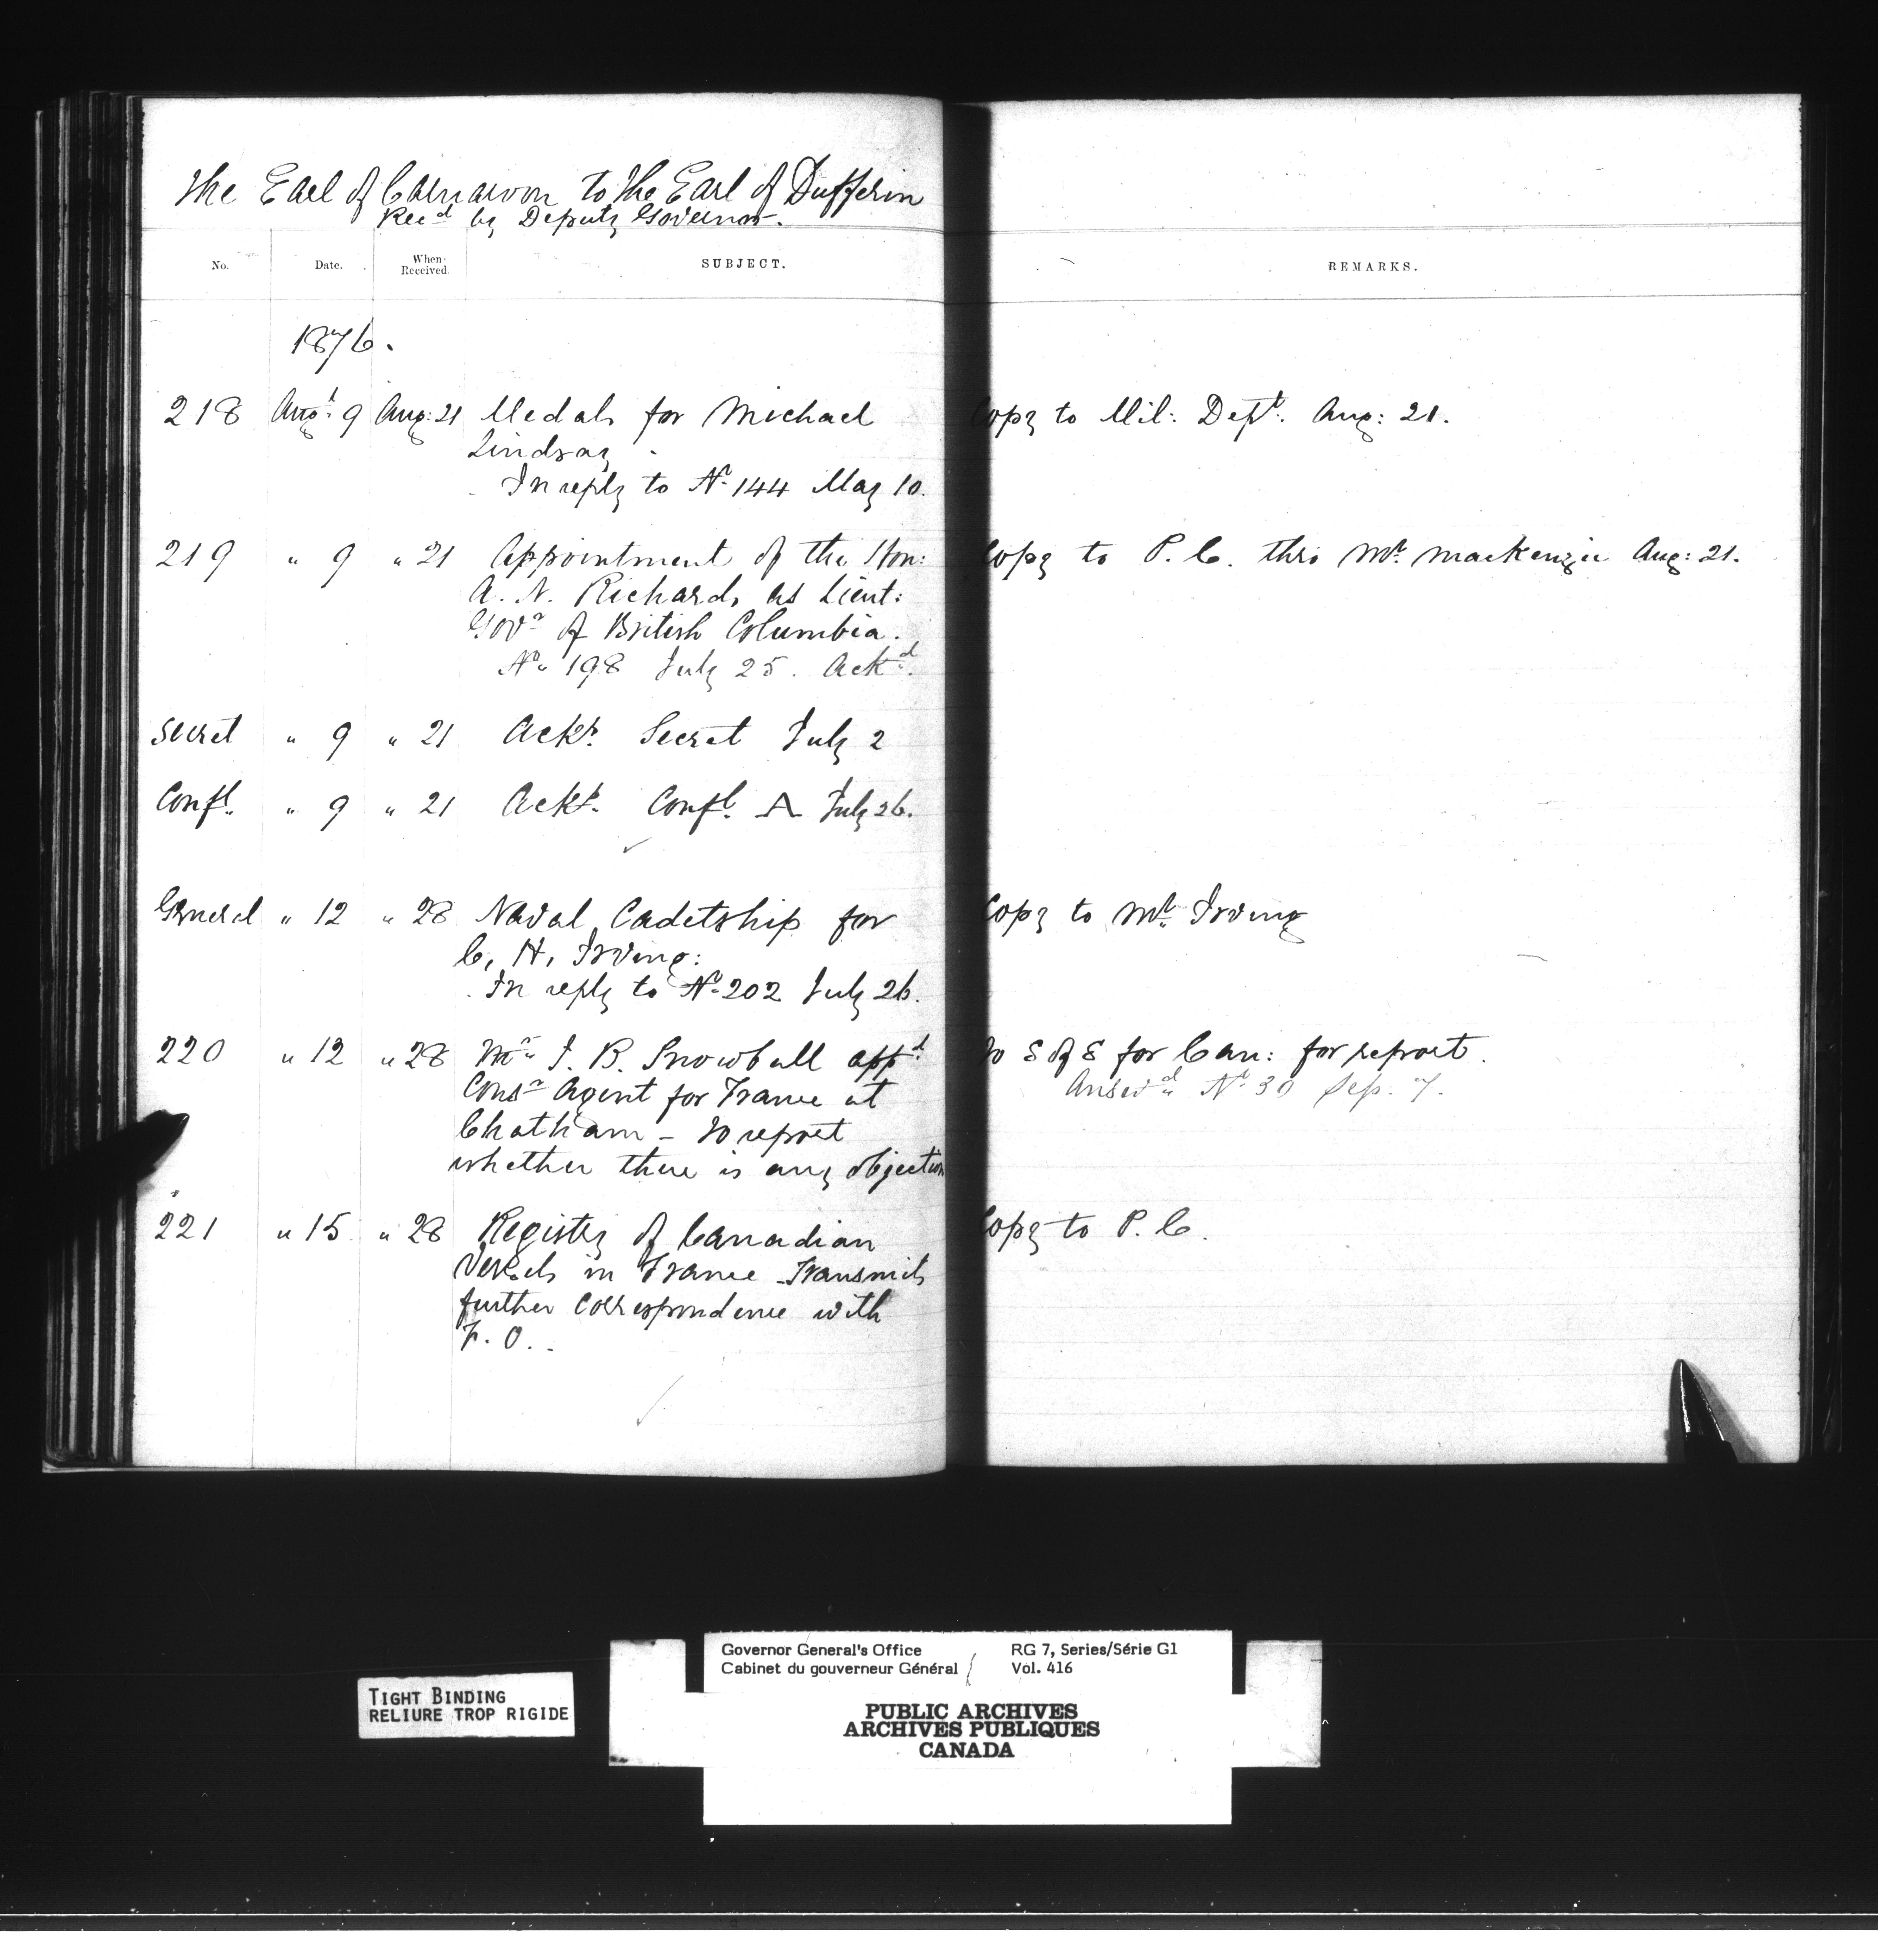 The Earl of Carnarvon to the Earl of Dufferin
Recd by Deputy Governor.
No. Date. When Received. SUBJECT. REMARKS.
1876.
218 Augt 9 Aug: 21 Medals for Michael Copy to Mil: Dept. Aug: 21.
Lindsay.
In reply to No 144 May 10.
219 " 9 " 21 Appointment of the Hon: Copy to P. C. thro Mr. Mackenzie Aug: 21.
A. N. Richards as Lieut:
Govr of British Columbia.
No 198 July 25. Ackd.
Secret " 9 " 21 Ackt. Secret July 2
Confl. " 9 " 21 Ackt. Confl. A July 26.
General " 12 " 28 Naval Cadetship for Copy to Mr. Irving
C. H. Irving:
In reply to No 202 July 26.
220 " 12 " 28 Mr. J. B. Snowball appd To S of S for Can: for report.
Consr Agent for France at Answd No 30 Sep. 7.
Chatham – To report
whether there is any objection
221 " 15 " 28 Registry of Canadian Copy to P. C.
Vessels in France – Transmits
further correspondence with
F. O.
Governor General's Office RG 7, Series/Série G1
Cabinet du gouverneur Général Vol. 416
TIGHT BINDING
RELIURE TROP RIGIDE
PUBLIC ARCHIVES
ARCHIVES PUBLIQUES
CANADA